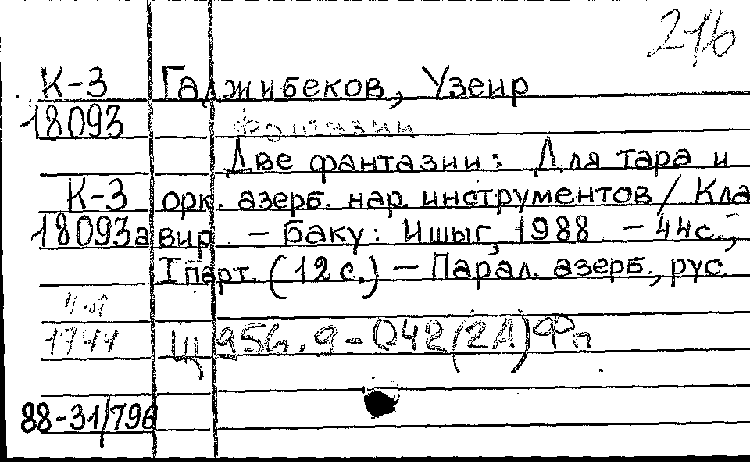 216
К-3 Гаджибеков, Узеир
18093 Фантазии
Две фантазии: Для тара и
К-3 орк. азерб. нар. инструментов / Кла
18093а вир. - Баку: Ишыг, 1988 - 44с.,
1 парт. (12 с.) - Парал. азерб., рус.
1744 Щ 956.9-042(2А)Фп
88-31/796